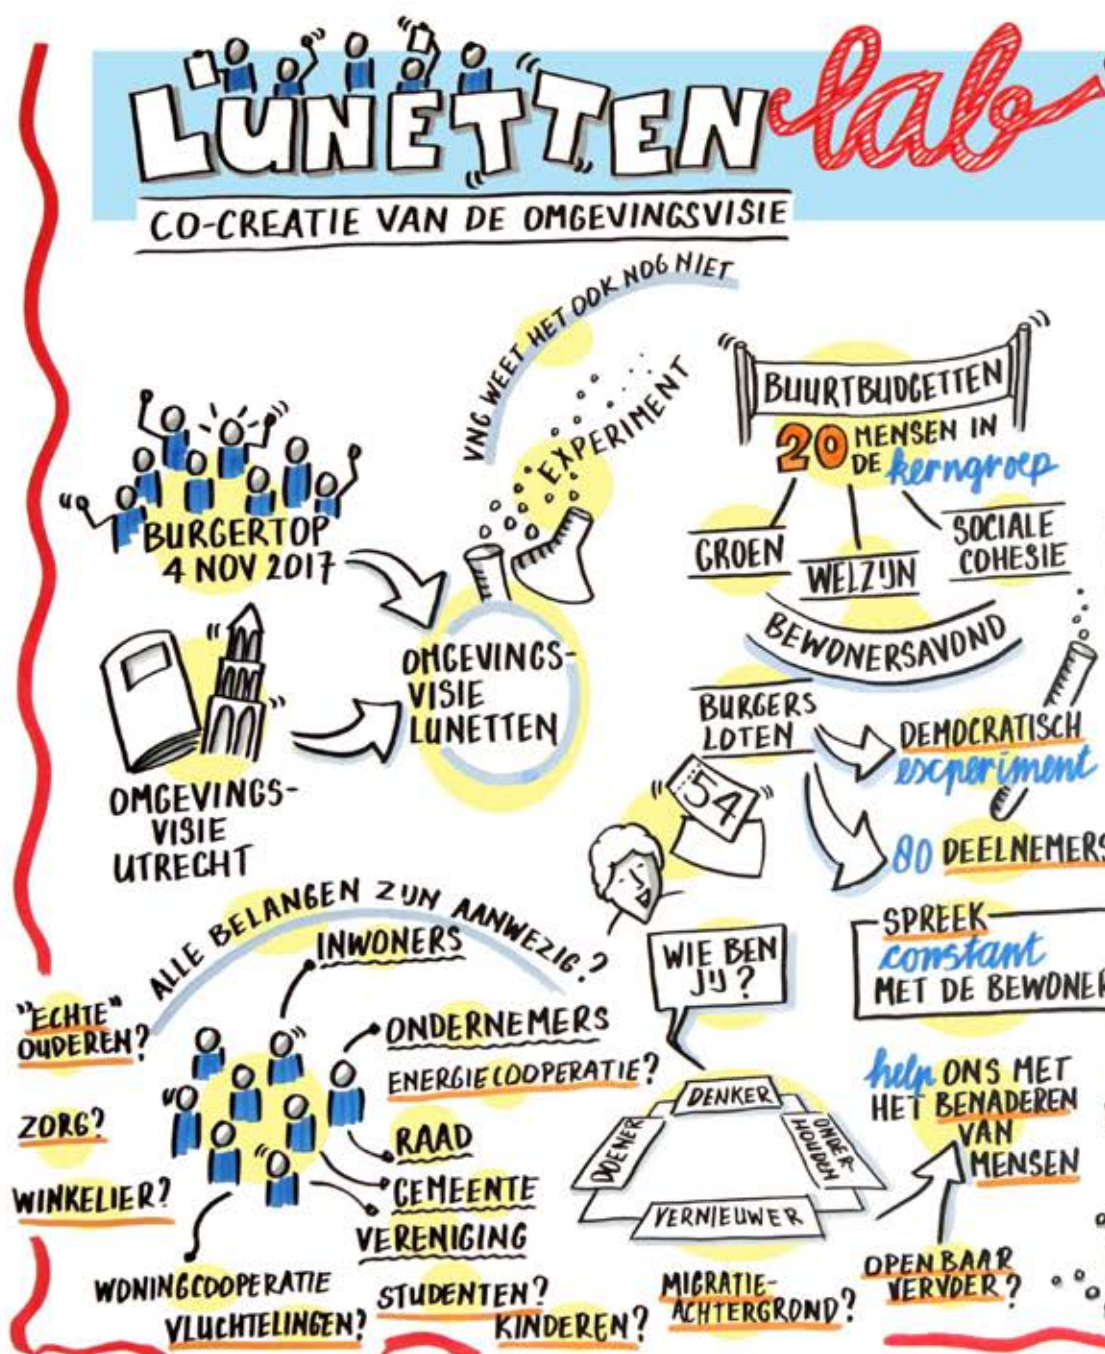 LUNETTEN lab
CO-CREATIE VAN DE OMGEVINGSVISIE
VNG WEET HET OOK NOG NIET
EXPERIMENT
BURGERTOP
4 NOV 2017
OMGEVINGS-
VISIE
UTRECHT
OMGEVINGS-
VISIE
LUNETTEN
BUURTBUDGETTEN
20 MENSEN IN
DE kerngroep
GROEN
WELZIJN
SOCIALE
COHESIE
BEWONERSAVOND
BURGERS
LOTEN
DEMOCRATISCH
experiment
54
80 DEELNEMERS
SPREEK
constant
MET DE BEWONER
ALLE BELANGEN ZIJN AANWEZIG?
INWONERS
"ECHTE"
OUDEREN?
ONDERNEMERS
ENERGIECOOPERATIE?
ZORG?
RAAD
WINKELIER?
GEMEENTE
VERENIGING
WONINGCOOPERATIE
VLUCHTELINGEN?
STUDENTEN?
KINDEREN?
WIE BEN
JIJ?
DENKER
DOENER
ONDER-
HOUDEN
VERNIEUWER
MIGRATIE-
ACHTERGROND?
help ONS MET
HET BENADEREN
VAN
MENSEN
OPENBAAR
VERVOER?